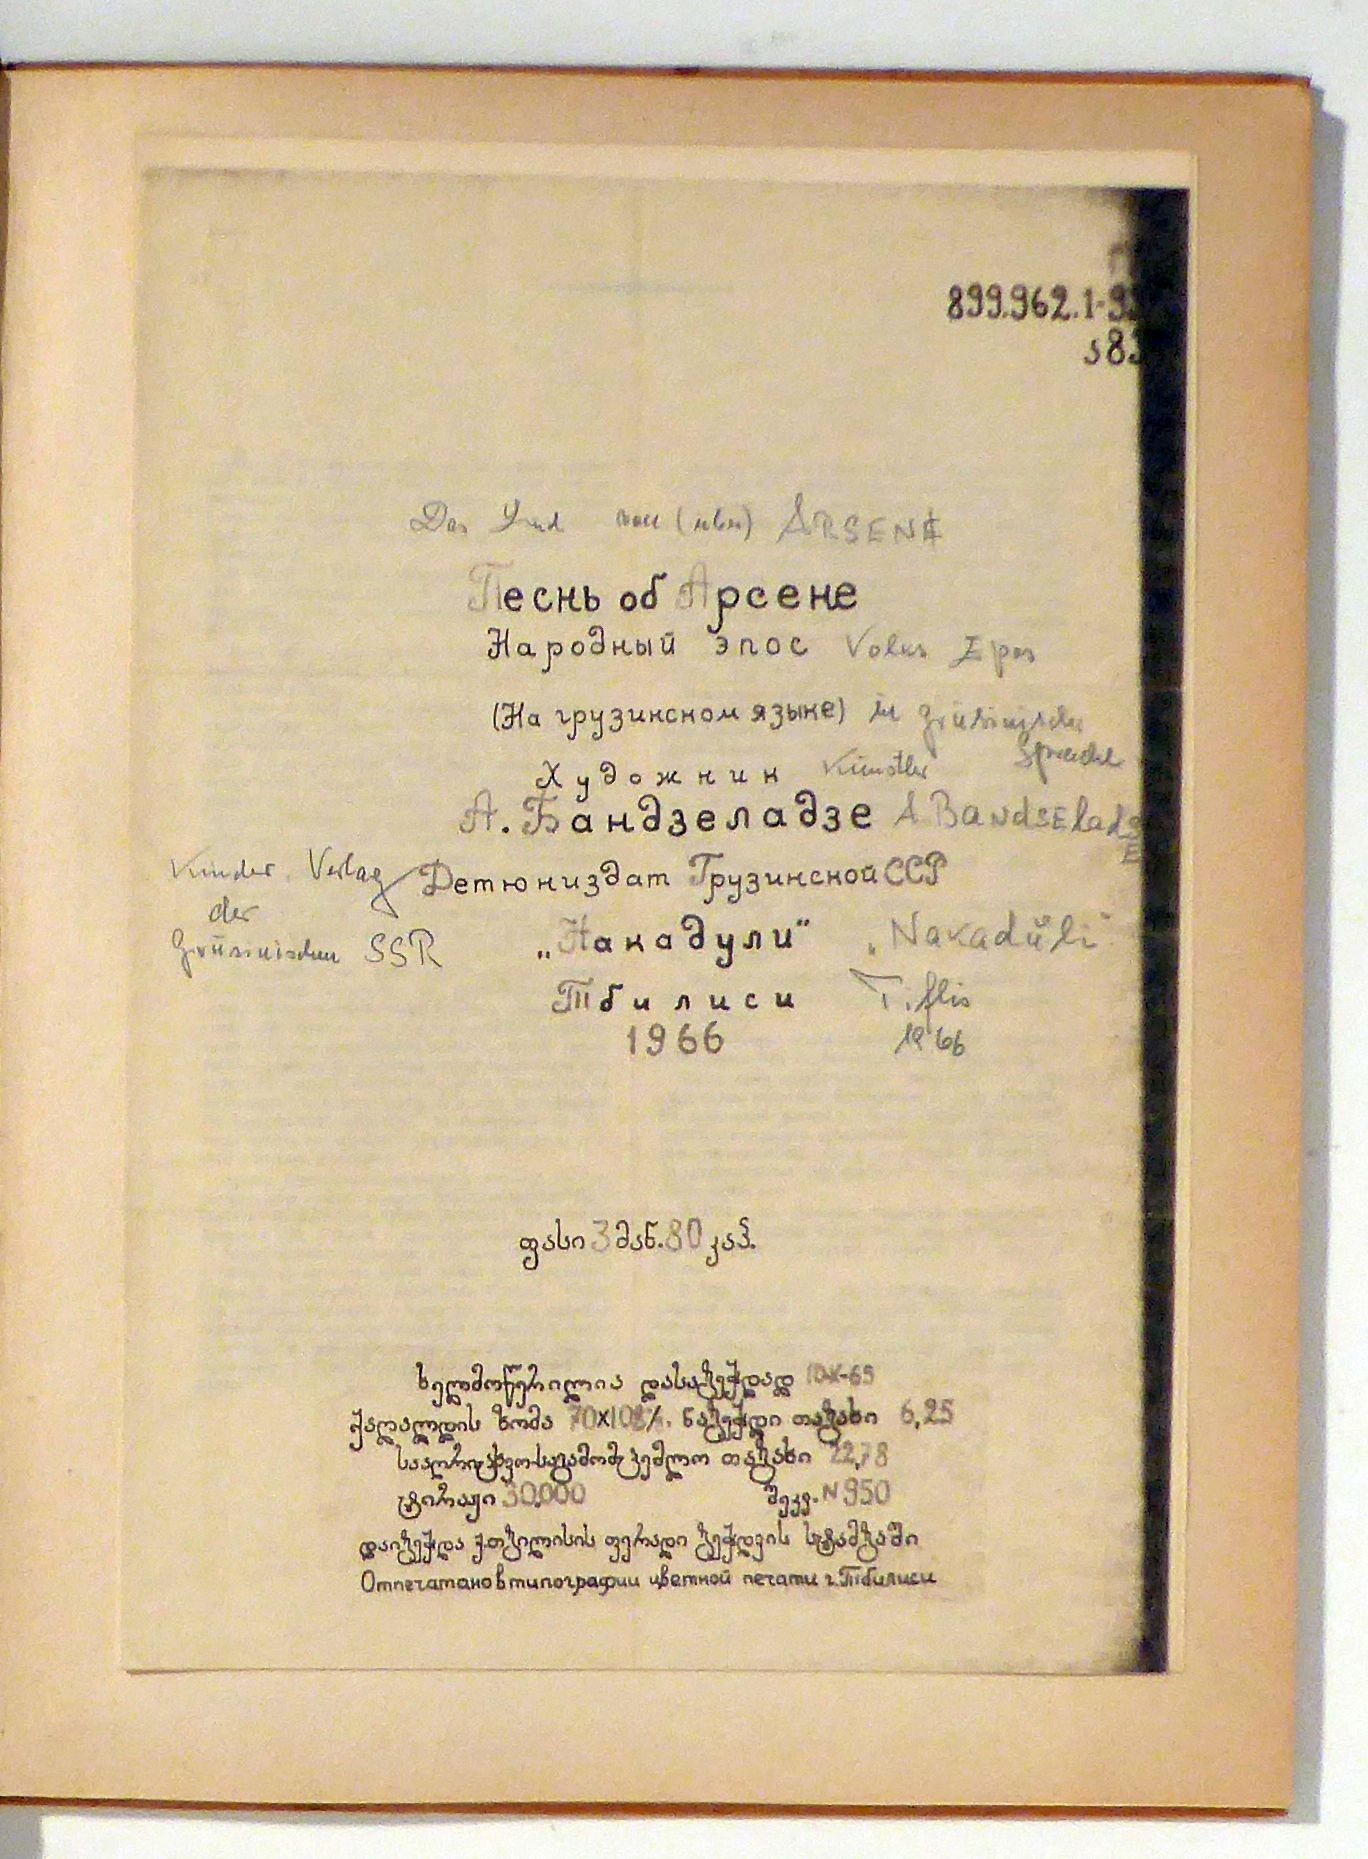 899.962.1-93
ა 83
Das Lied von (über) ARSENE
Песнь об Арсене
Народный эпос Volks Epos
(На грузинском языке) in grüsinische Sprache
Художник Künstler
А. Бандзеладзе A BANDSELADSE
Kinder Verlag Детюниздат Грузинской ССР
der
Grüsinischen SSR „Накадули“ „Nakadüli“
Тбилиси Tiflis
1966 1966
ფასი 3 მან. 80 კაპ.
ხელმოწერილია დასაბეჭდად 10X-65
ქაღალდის ზომა 70X108⅛. ნაბეჭდი თაბახი 6,25
სააღრიცხვო-საგამომცემლო თაბახი 22,78
ტირაჟი 30.000 შეკვ. N950
დაიბეჭდა ქ.თბილისის ფერადი ბეჭდვის სტამბაში
Отпечатано в типографии цветной печати г. Тбилиси